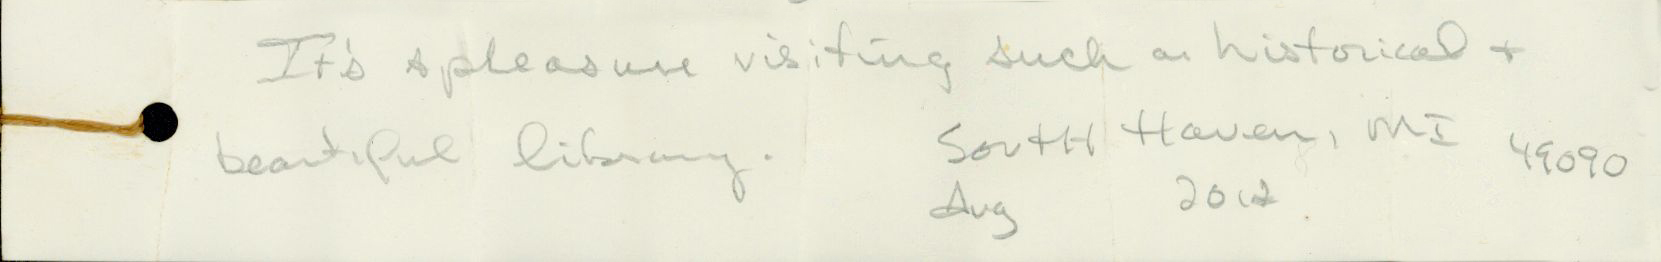 It's a pleasure visiting such a historical +
beautiful library.
South Haven, MI 49090
Aug 2012